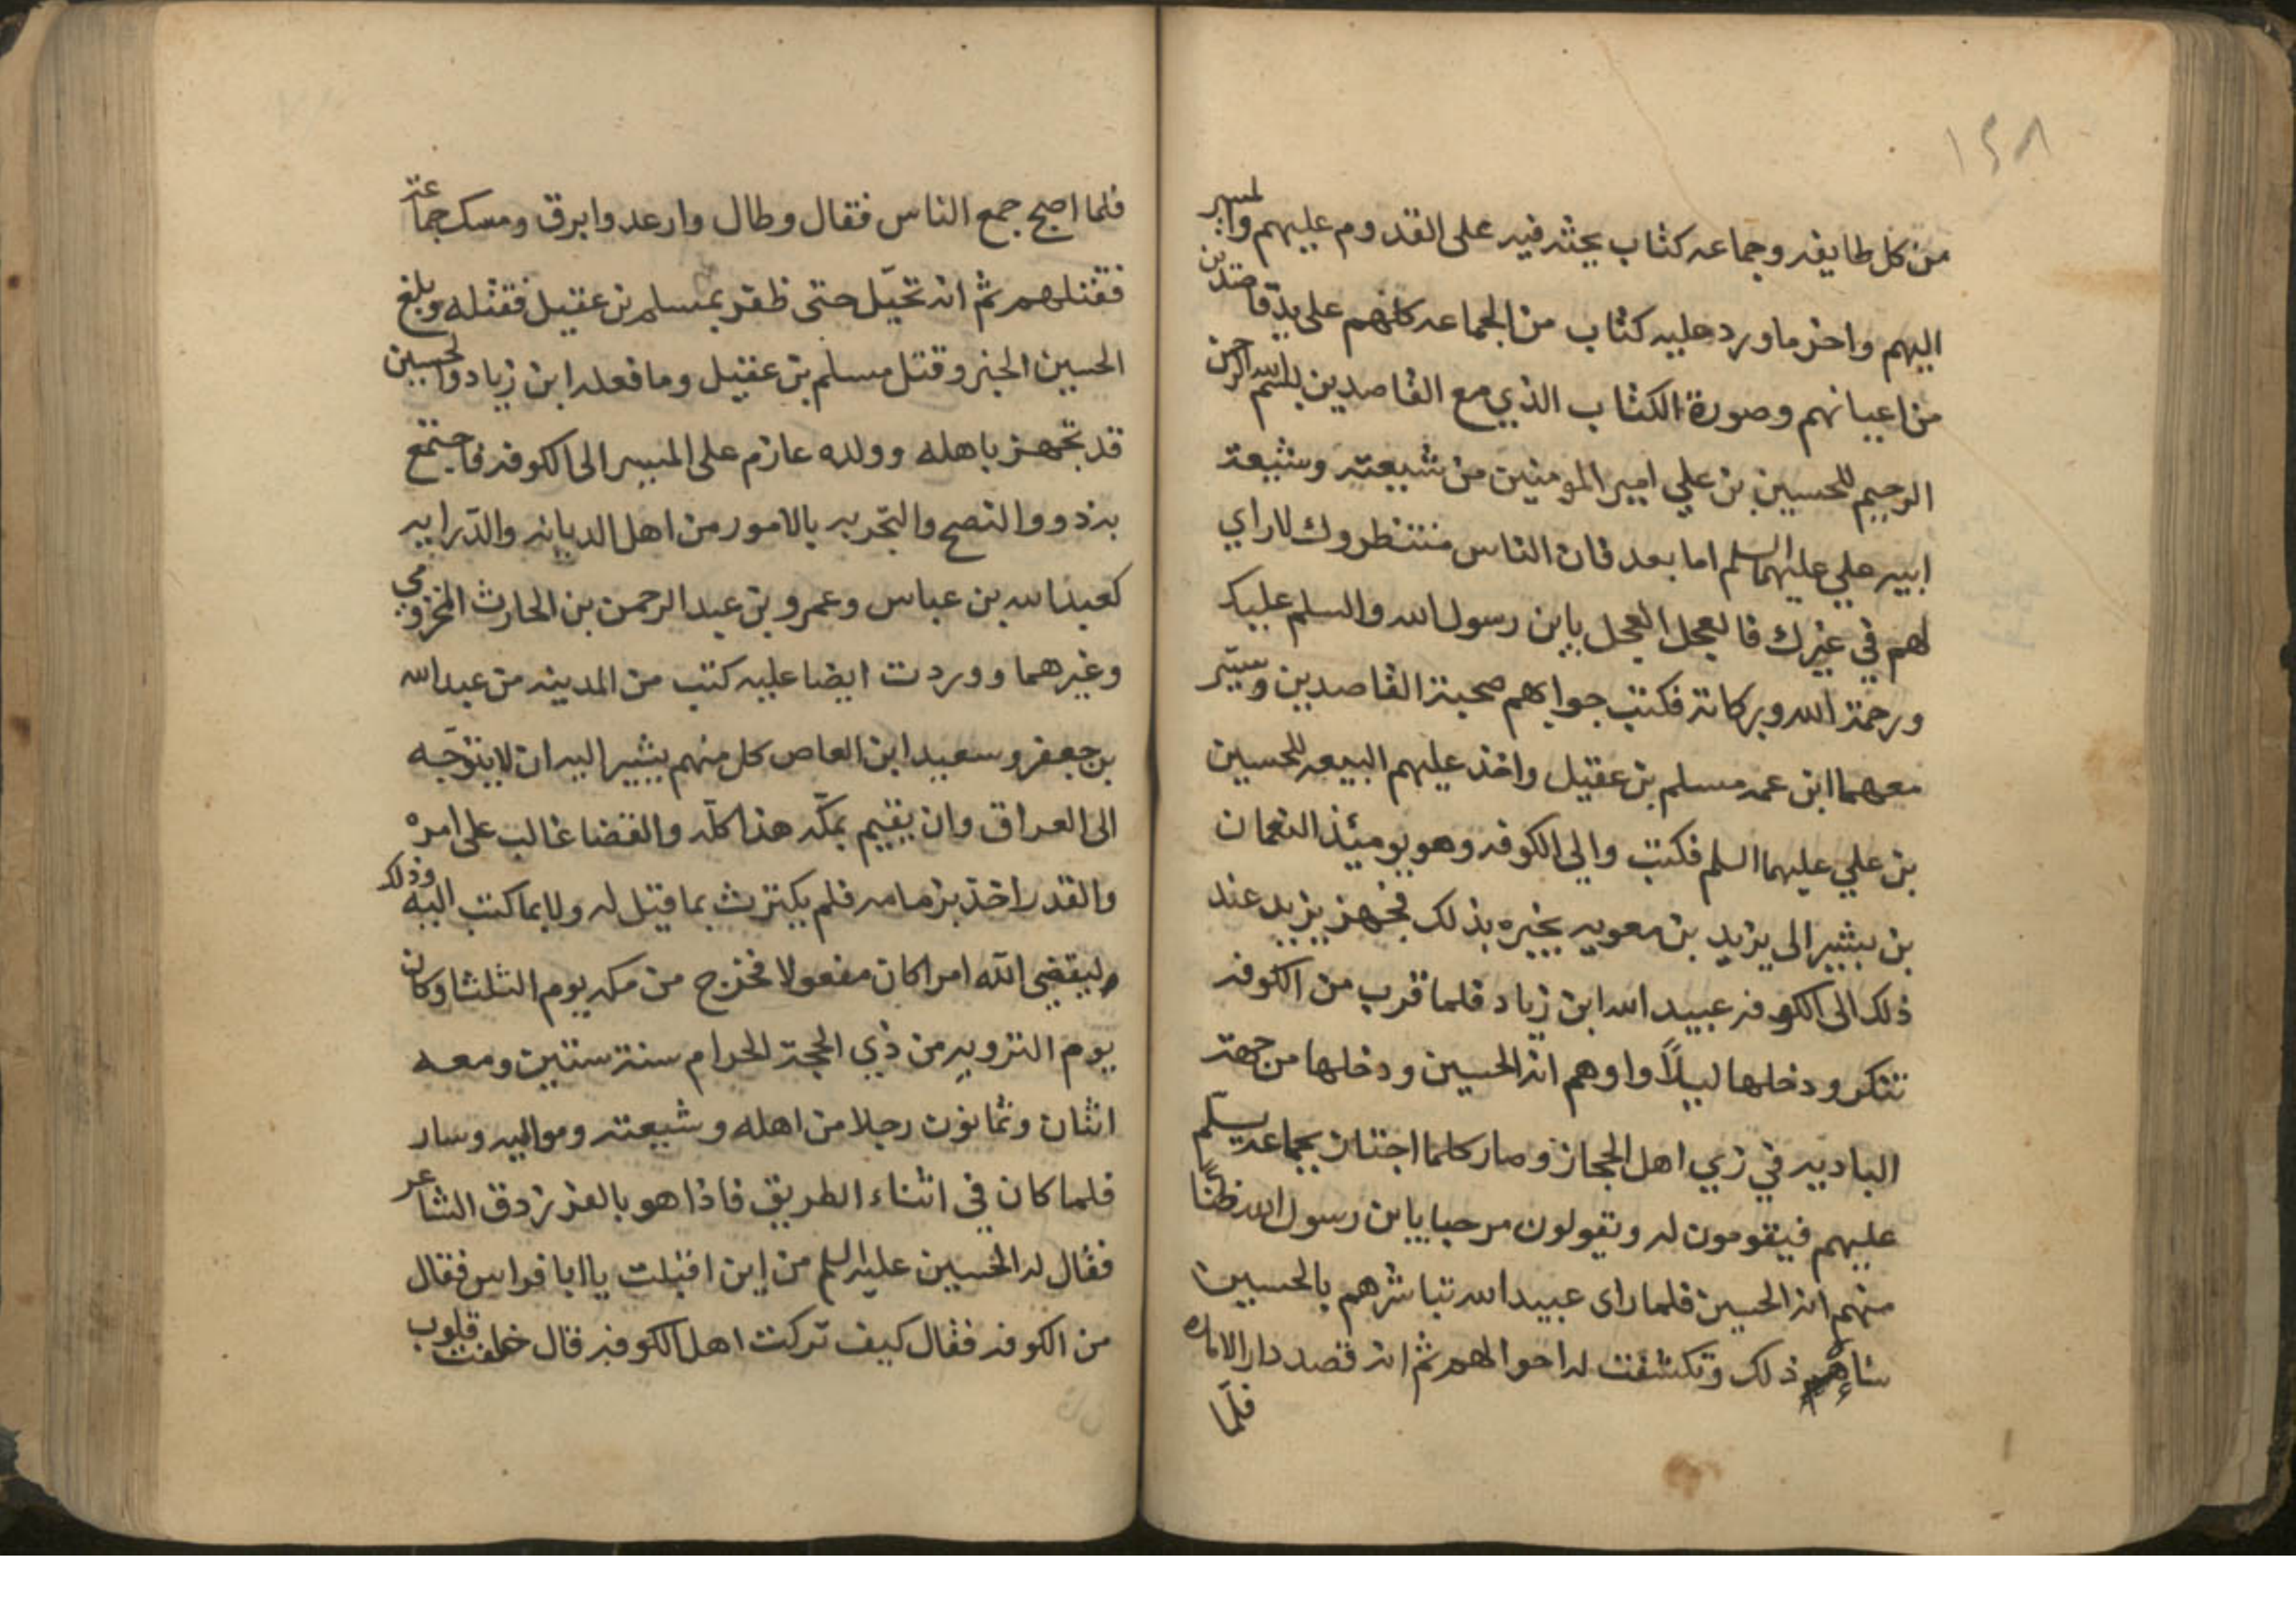 ١٢٨
من كل طايفه وجماعه كتاب يحثه فيه على القدوم عليهم والمسير
اليهم واخر ما ورد عليه كتاب من الجماعه كلهم على يد قاصدين
من اعيانهم وصورة الكتاب الذي مع القاصدين بسم الله الرحمن
الرحيم للحسين بن علي امير المومنين من شيعته وشيعة
ابيه علي عليهما السلم اما بعد فان الناس منتظروك لا راي
لهم في غيرك فالعجل العجل يا بن رسول الله والسلم عليك
ورحمة الله وبركاته فكتب جوابهم صحبة القاصدين وسيّر
معهما ابن عمه مسلم بن عقيل واخذ عليهم البيعه للحسين
بن علي عليهما السلم فكتب والي الكوفه وهو يومئذ النعمان
بن بشير الى يزيد بن معويه يخبره بذلك فجهز يزيد عند
ذلك الى الكوفه عبيد الله ابن زياد فلما قرب من الكوفه
تنكر ودخلها ليلاً واوهم انه الحسين ودخلها من جهة
الباديه في زي اهل الحجاز وصار كلما اجتاز بجماعه يسلم
عليهم فيقومون له ويقولون مرحبا يا بن رسول الله ظنا
منهم انه الحسين فلما راى عبيد الله تباشرهم بالحسين
ساءه ذلك وتكشفت له احوالهم ثم انه قصد دار الاماره
فلمّا
فلما اصبح جمع الناس فقال وطال وارعد وابرق ومسك جماعة
فقتلهم ثم انه تحيّل حتى ظفر بمسلم بن عقيل فقتله وبلغ
الحسين الخبر وقتل مسلم بن عقيل وما فعله ابن زياد والحسين
قد تجهز باهله وولده عازم على المسير الى الكوفه فاجتمع
به ذووا النصح والتجربه بالامور من اهل الديانه والدّرايه
كعبد الله بن عباس وعمرو بن عبد الرحمن بن الحارث المخزومي
وغيرهما ووردت ايضا عليه كتب من المدينه من عبد الله
بن جعفر وسعيد ابن العاص كل منهم يشير اليه ان لا يتوجّه
الى العراق وان يقيم بمكّه هذا كلّه والقضا غالب على امره
والقدر اخذ بزمامه فلم يكترث بما قيل له ولا بما كتب اليه وذلك
ليقضي الله امرا كان مفعولا فخرج من مكه يوم الثلثا وكان
يوم الترويه من ذي الحجة الحرام سنة ستين ومعه
اثنان وثمانون رجلا من اهله وشيعته ومواليه وسار
فلما كان في اثناء الطريق فاذا هو بالفرزدق الشاعر
فقال له الحسين عليه السلم من اين اقبلت يا ابا فراس فقال
من الكوفه فقال كيف تركت اهل الكوفه قال خلفت قلوب